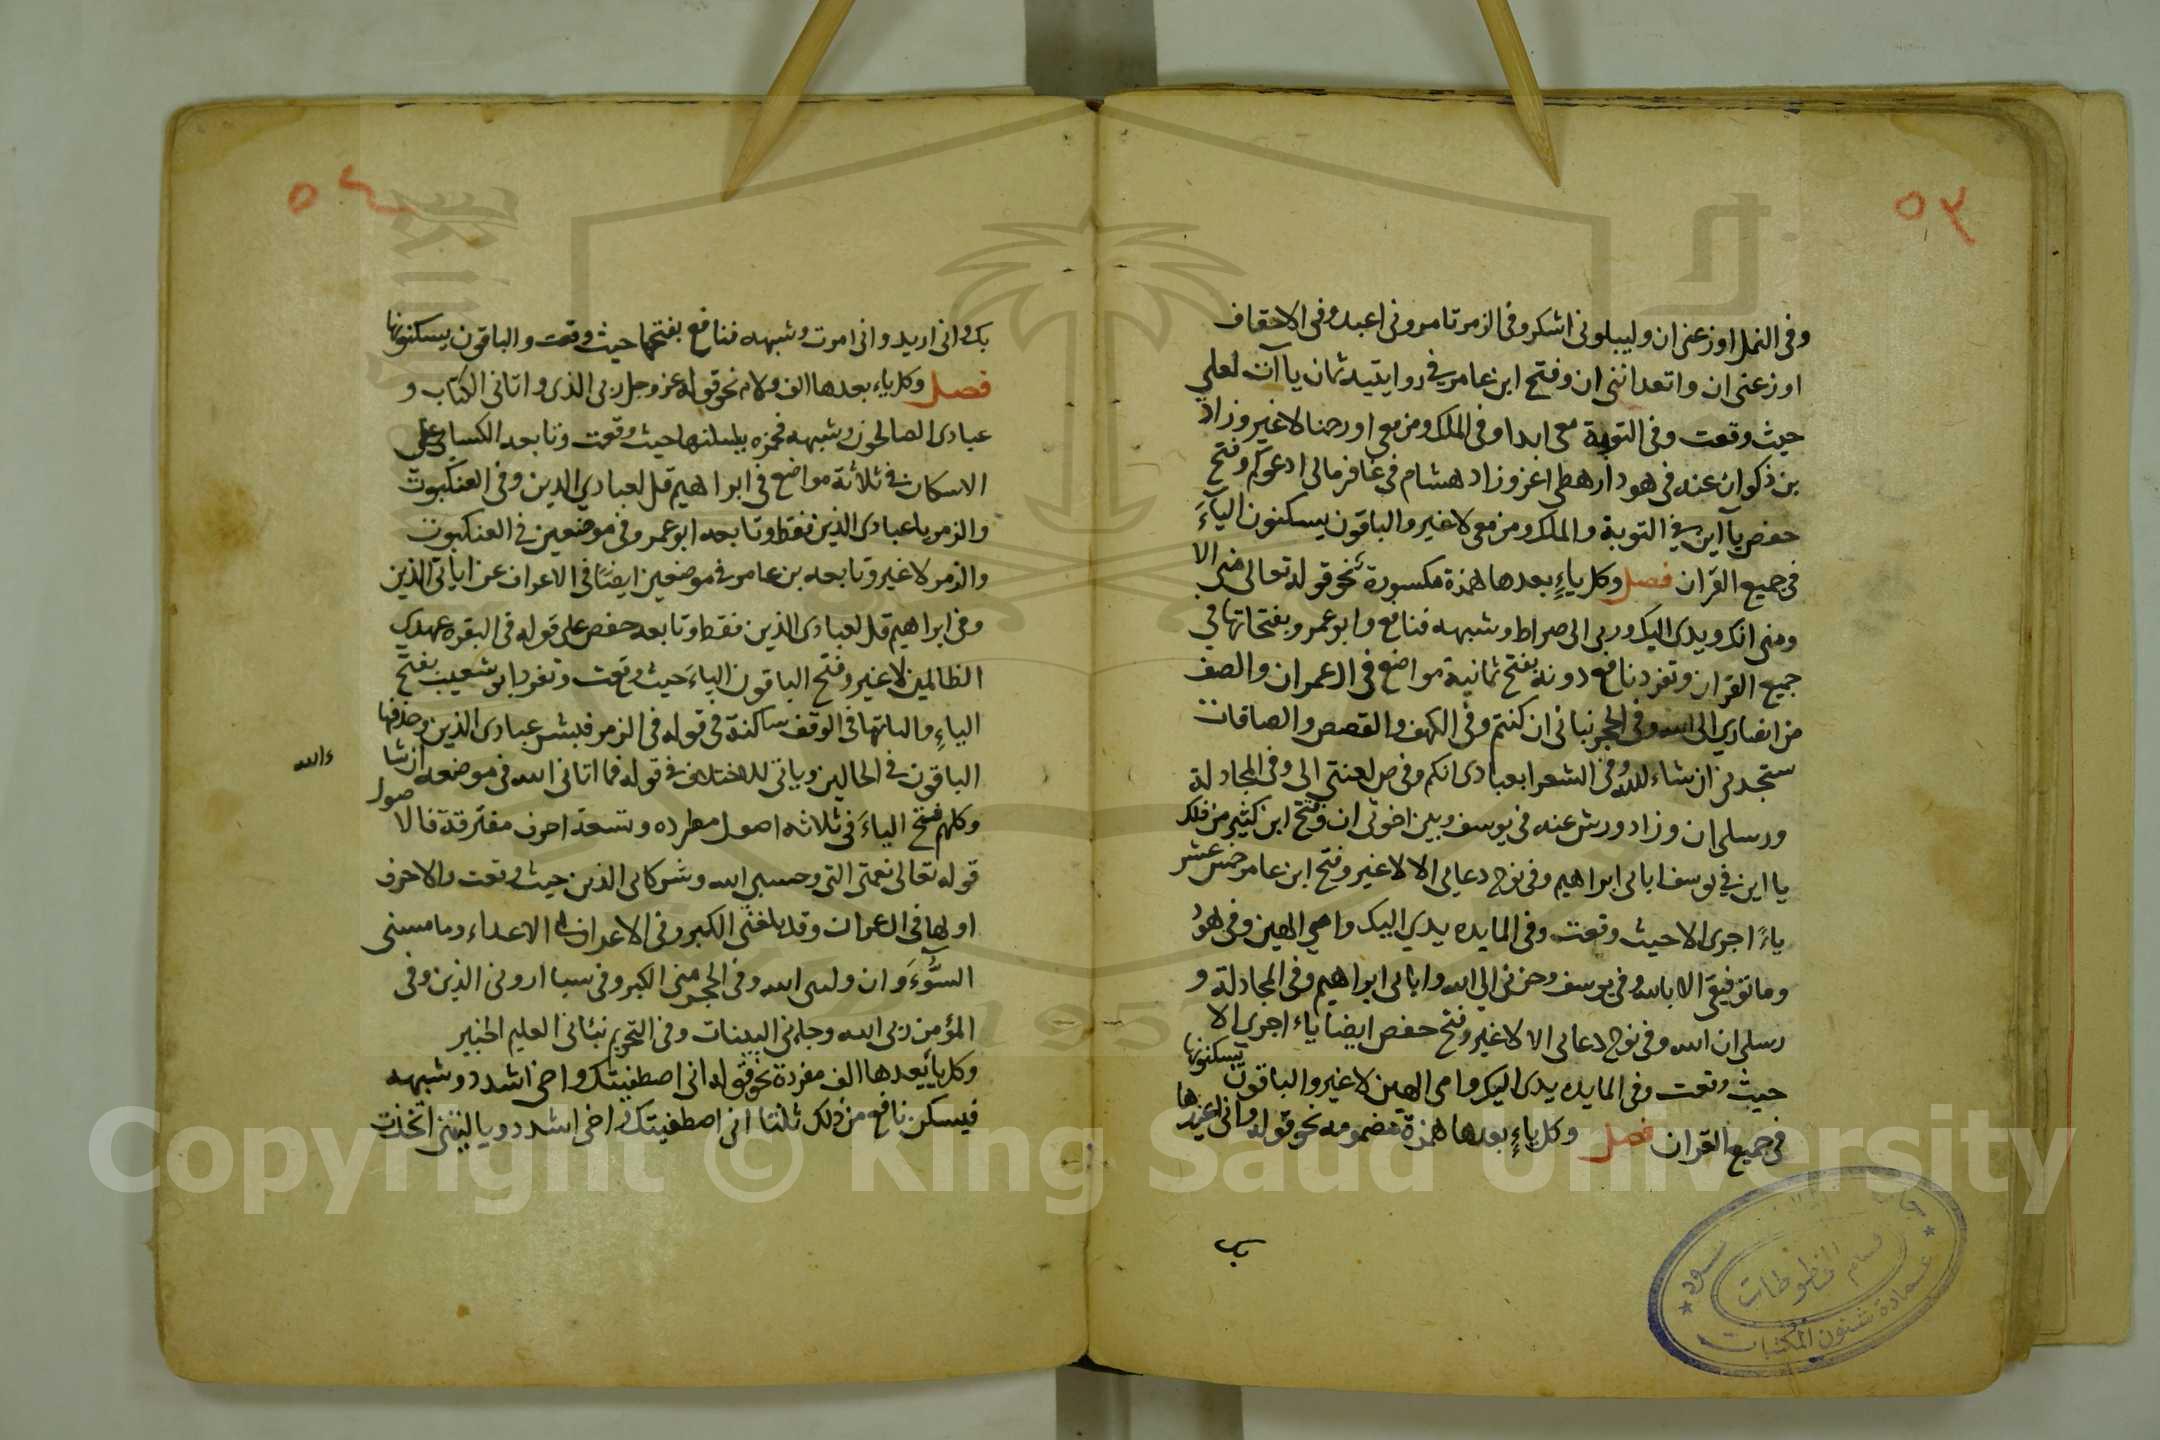 ٥٣
وفى النمل اوزعنى ان وليبلونى اشكر وفى الزمر تامرونى اعبد وفى الاحقاف
اوزعنى ان واتعداننى ان وفتح ابن عامر فى روايتيه ثمان يا آت لعلى
حيث وقعت وفى التوبة معى ابدا وفى الملك ومن معى او رحمنا لا غير وزاد
بن ذكوان عنه فى هود ارهطى اعز وزاد هشام فى غافر مالى ادعوكم وفتح
حفص يا اين فى التوبة والملك ومن معى لا غير والباقون يسكنون الياءَ
فى جميع القران فصل وكل ياءٍ بعدها همزة مكسورة نحو قوله تعالى منى الا
ومنى انك ويدى اليك وربى الى صراط وشبهه فنافع وابو عمرو بفتحانها فى
جميع القران وتفرد نافع دونه بفتح ثمانية مواضع فى ال عمران والصف
من انصارى الى الله وفى الحجر بناتى ان كنتم وفى الكهف والقصص والصافات
ستجدنى ان شاء الله وفى الشعرا بعبادى انكم وفى ص لعنتى الى وفى المجادلة
ورسلى ان وزاد ورش عنه فى يوسف وبين اخوتى ان وفتح ابن كثير من ذلك
يا اين فى يوسف ابائى ابراهيم وفى نوح دعايى الا لا غير وفتح ابن عامر خمس عشر
ياءً اجرى الا حيث وقعت وفى المايده يدى اليك وامى الهين وفى هود
وما توفيقى الا بالله وفى يوسف وحزنى الى الله وابائى ابراهيم وفى المجادلة و
رسلى ان الله وفى نوح دعائى الا لا غير وفتح حفص ايضا ياء اجرى الا
حيث وقعت وفى المايده يدى اليك وامى الهين لا غير والباقون يسكنونها
فى جميع القران فصل وكل ياءٍ بعدها همزة مضمومه نحو قوله وانى اعيذها
بك
قسم المخطوطات
عمادة شئون المكتبات
٥٤
بك وانى اريد وانى امرت وشبهه فنافع بفتحها حيث وقعت والباقون يسكنونها
فصل وكل ياء بعدها الف ولام نحو قوله عز وجل ربى الذى واتانى الكتاب و
عبادى الصالحون وشبهه فحمزه يسكنها حيث وقعت وتابعه الكسائى على
الاسكان فى ثلاثة مواضع فى ابراهيم قل لعبادى الذين وفى العنكبوت
والزمر يا عبادى الذين فقط وتابعه ابو عمرو فى موضعين فى العنكبوت
والزمر لا غير وتابعه بن عامر فى موضعين ايضًا فى الاعراف عن اياتى الذين
وفى ابراهيم قل لعبادى الذين فقط وتابعه حفص على قوله فى البقره عهدى
الظالمين لا غير وفتح الباقون الياءَ حيث وقعت وتفرد ابو شعيب بفتح
الياءِ واثباتها فى الوقف ساكنة فى قوله فى الزمر فبشر عبادى الذين وحذفها
الباقون فى الحالين وياتى للاختلاف فى قوله فما اتانى الله فى موضعه ان شا
ءالله
وكلهم فتح الياءَ فى ثلاثه اصول مطرده وتسعة احرف مفترقة فالاصول
قوله تعالى نعمتى التى وحسبى الله وشركائى الذين حيث وقعت والاحرف
اولها فى ال عمران وقد بلغنى الكبر وفى الاعراف بى الاعداء وما مسنى
السُّوءَ وان وليى الله وفى الحجر مسنى الكبر وفى سبا ارونى الذين وفى
المؤمن ربى الله وجاءنى البينات وفى التحريم نبئانى العليم الخبير
وكل ياء بعدها الف مفردة نحو قوله انى اصطفيتك واخى اشدد وشبهه
فيسكن نافع من ذلك ثلثا انى اصطفيتك واخى اشدد ويا ليتنى اتخذت
Copyright © King Saud University
1957